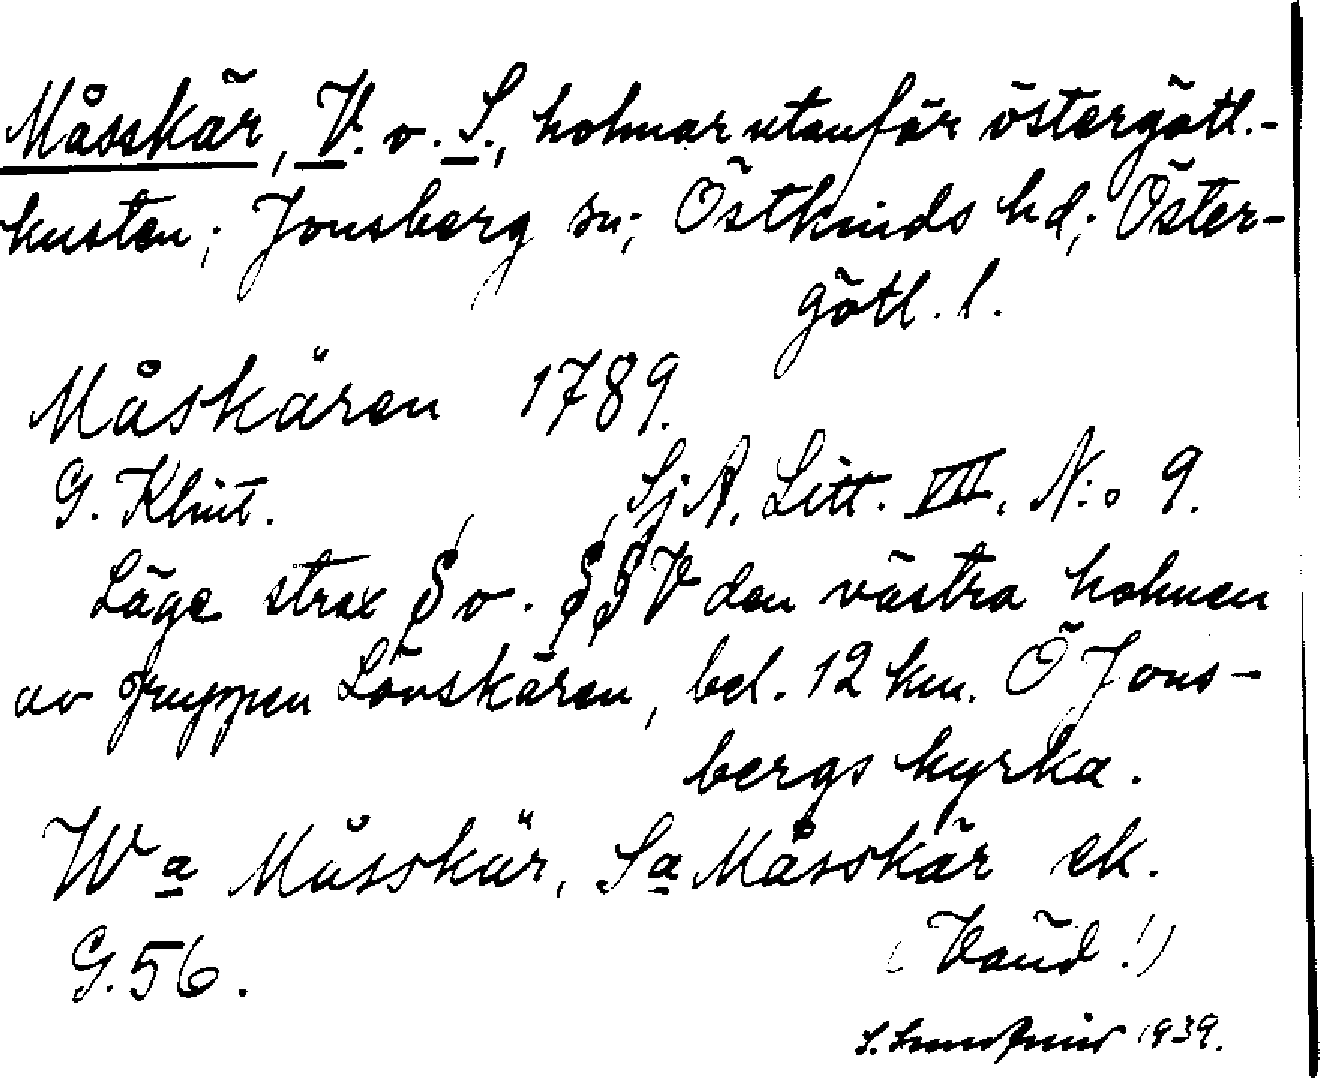 Måsskär, V. o. S., holmar utanför östergötl.-
kusten; Jonsberg sn; Östkinds hd; Öster-
götl. l.
Måskären 1789.
G. Klint. Sj A. Litt. VII. N:o 9.
Läge strax S o. SSV den västra holmen
av gruppen Lövskären, bel. 12 km. Ö Jons-
bergs kyrka.
Wa Måsskär, Sa Måsskär ek.
G. 56. (Vänd!)
S. 1939.